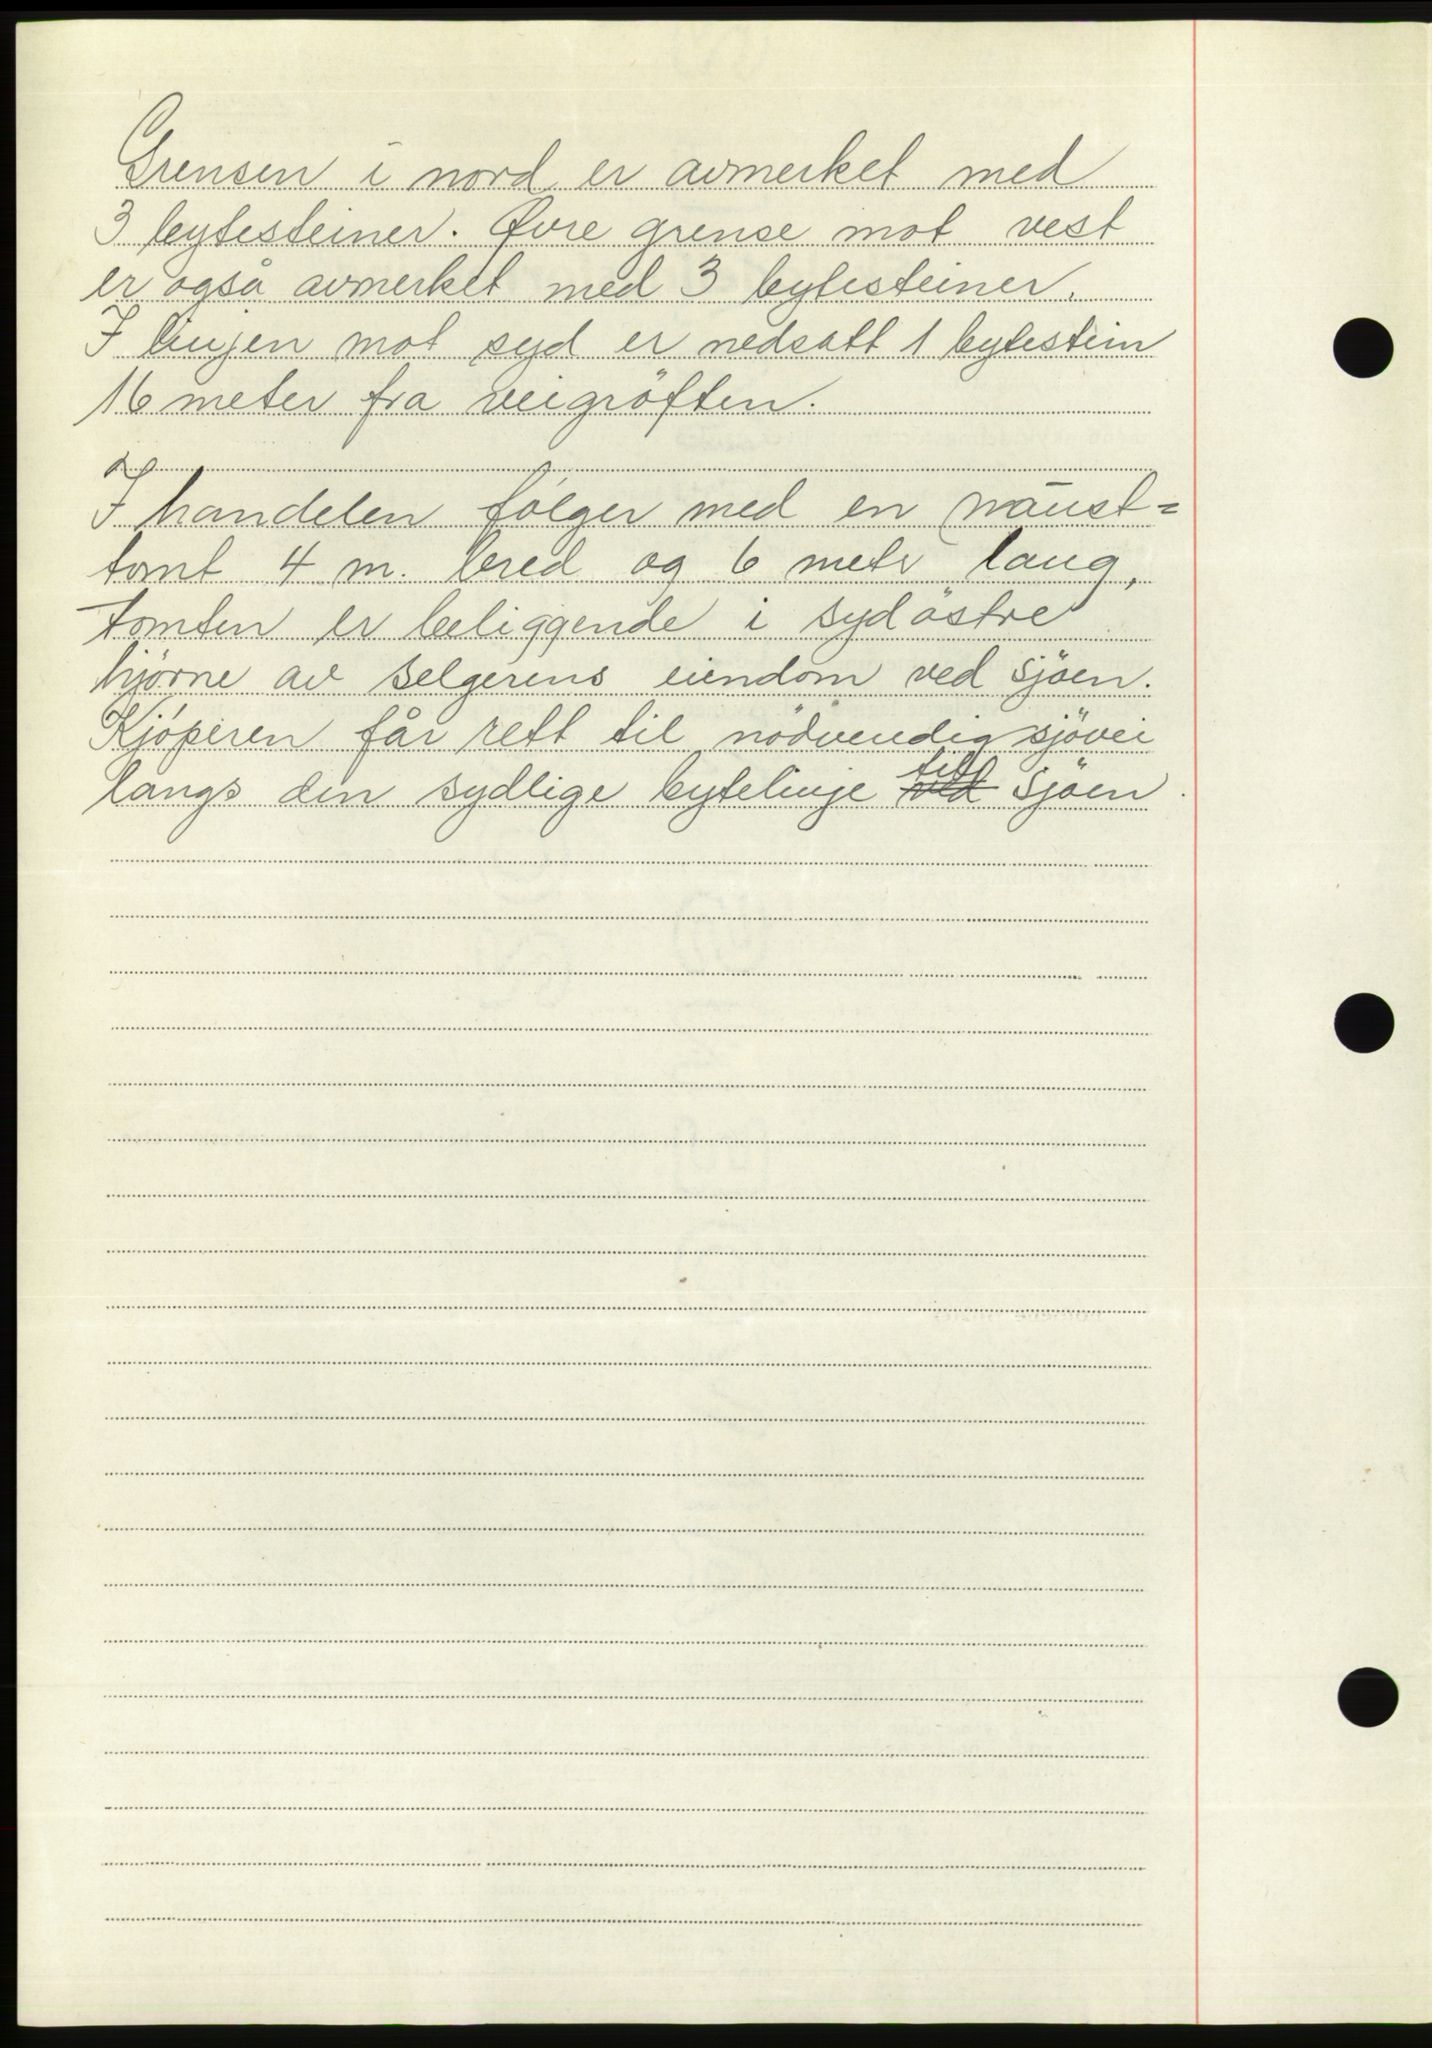 Grensen i nord er avmerket med
3 bytesteiner. Øvre grense mot vest
er også avmerket med 3 bytesteiner.
I linjen mot syd er nedsatt 1 bytestein
16 meter fra veigröften.
I handelen følger med en naust=
tomt 4 m. bred og 6 meter lang,
tomten er beliggende i sydöstre
hjörne av selgerens eiendom ved sjöen.
Kjöperen får rett til nödvendig sjövei
langs den sydlige bytelinje ved til sjöen.